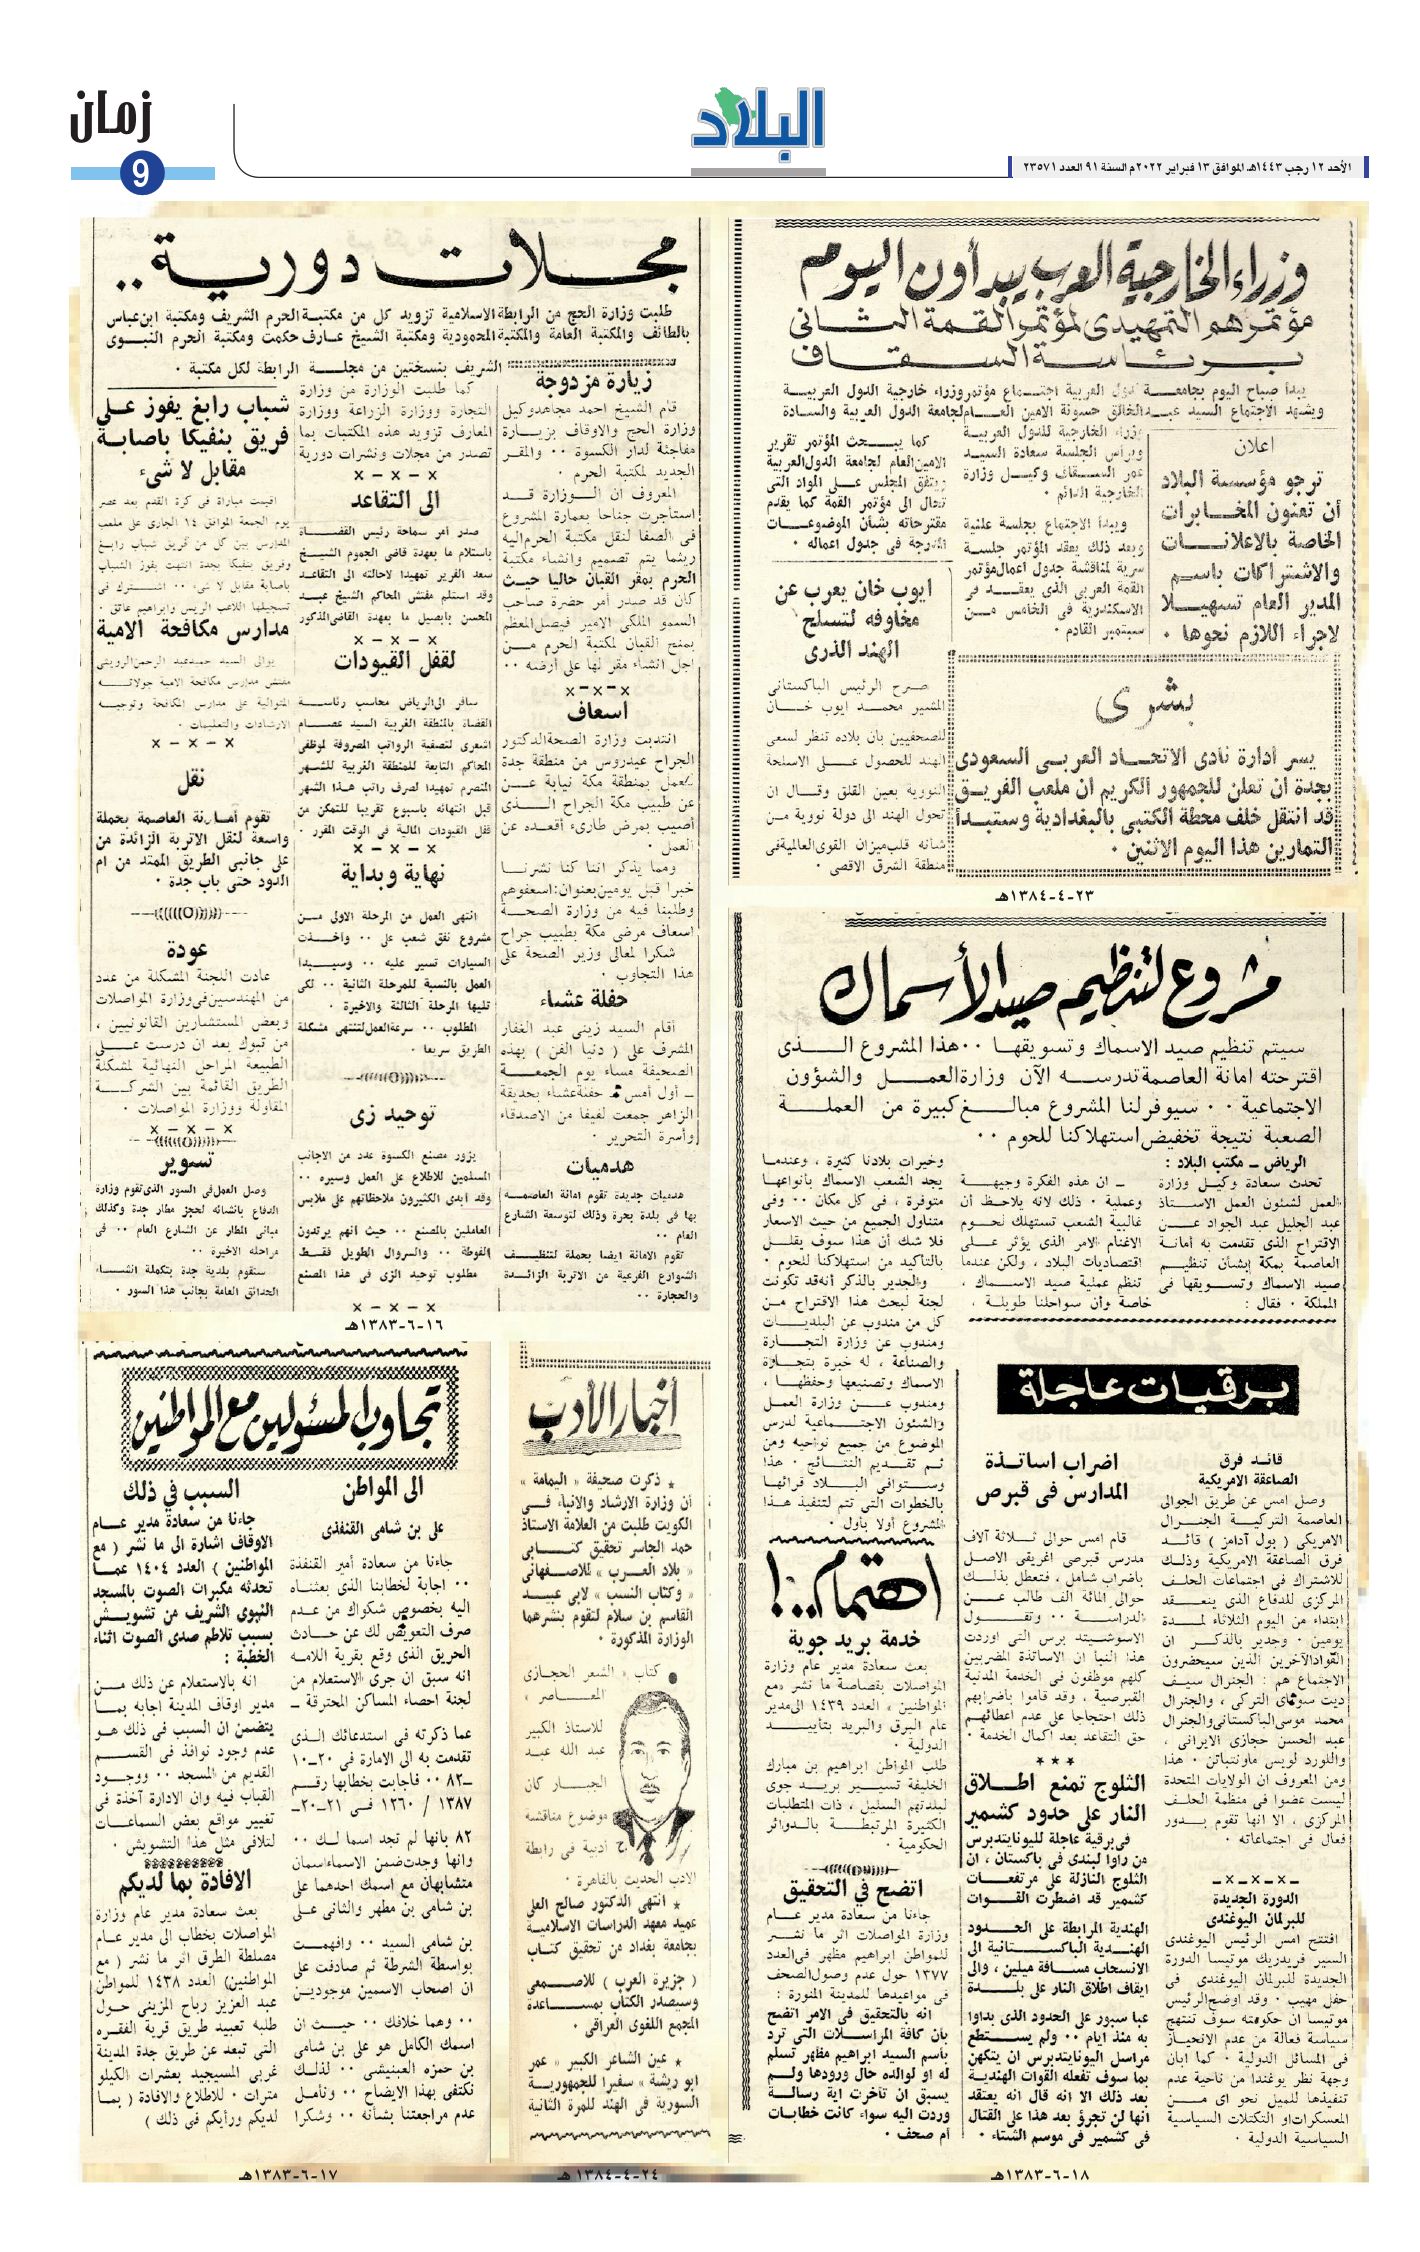 زمان
9
البلاد
الأحد ١٢ رجب ١٤٤٣هـ الموافق ١٣ فبراير ٢٠٢٢م السنة ٩١ العدد ٢٣٥٧١
وزراء الخارجية العرب يبدأون اليوم
مؤتمرهم التمهيدى لمؤتمر القمة الثانى
برئاسة السقاف
يبدأ صباح اليوم بجامعة الدول العربية اجتماع مؤتمر وزراء خارجية الدول العربية
ويشهد الاجتماع السيد عبد الخالق حسونة الامين العام لجامعة الدول العربية والسادة
وزراء الخارجية للدول العربية
ويرأس الجلسة سعادة السيد
عمر السقاف وكيل وزارة
الخارجية الدائم ٠
ويبدأ الاجتماع بجلسة علنية
وبعد ذلك يعقد المؤتمر جلسة
سرية لمناقشة جدول اعمال مؤتمر
القمة العربى الذى يعقد فى
الاسكندرية فى الخامس من
سبتمبر القادم ٠
كما يبحث المؤتمر تقرير
الامين العام لجامعة الدول العربية
ويتفق المجلس على المواد التى
تحال الى مؤتمر القمة كما يقدم
مقترحاته بشأن الموضوعات
المدرجة فى جدول اعماله ٠
اعلان
ترجو مؤسسة البلاد
أن تعنون المخابرات
الخاصة بالاعلانات
والاشتراكات باسم
المدير العام تسهيلا
لاجراء اللازم نحوها ٠
ايوب خان يعرب عن
مخاوفه لتسلح
الهند الذرى
صرح الرئيس الباكستانى
المشير محمد ايوب خان
للصحفيين بان بلاده تنظر لسعى
الهند للحصول على الاسلحة
النووية بعين القلق وقال ان
تحول الهند الى دولة نووية من
شأنه قلب ميزان القوى العالمية فى
منطقة الشرق الاقصى ٠
بشرى
يسر ادارة نادى الاتحاد العربى السعودى
بجدة ان تعلن للجمهور الكريم ان ملعب الفريق
قد انتقل خلف محطة الكتبى بالبغدادية وستبدأ
التمارين هذا اليوم الاثنين ٠
٢٣-٤-١٣٨٤هـ
مشروع لتنظيم صيد الأسماك
سيتم تنظيم صيد الاسماك وتسويقها ٠٠ هذا المشروع الذى
اقترحته امانة العاصمة تدرسه الآن وزارة العمل والشؤون
الاجتماعية ٠٠ سيوفر لنا المشروع مبالغ كبيرة من العملة
الصعبة نتيجة تخفيض استهلاكنا للحوم ٠٠
الرياض ــ مكتب البلاد :
تحدث سعادة وكيل وزارة
العمل لشئون العمل الاستاذ
عبد الجليل عبد الجواد عن
الاقتراح الذى تقدمت به أمانة
العاصمة بمكة بشأن تنظيم
صيد الاسماك وتسويقها فى
المملكة ٠ فقال :
ــ ان هذه الفكرة وجيهة
وعملية ٠ ذلك لانه يلاحظ أن
غالبية الشعب تستهلك لحوم
الاغنام الامر الذى يؤثر على
اقتصاديات البلاد ، ولكن عندما
تنظم عملية صيد الاسماك ،
خاصة وأن سواحلنا طويلة ،
وخيرات بلادنا كثيرة ، وعندما
يجد الشعب الاسماك بأنواعها
متوفرة ، فى كل مكان ٠٠ وفى
متناول الجميع من حيث الاسعار
فلا شك أن هذا سوف يقلل
بالتأكيد من استهلاكنا للحوم ٠
والجدير بالذكر أنه قد تكونت
لجنة لبحث هذا الاقتراح من
كل من مندوب عن البلديات
ومندوب عن وزارة التجارة
والصناعة ، له خبرة بتجارة
الاسماك وتصنيعها وحفظها ،
ومندوب عن وزارة العمل
والشئون الاجتماعية لدرس
الموضوع من جميع نواحيه ومن
ثم تقديم النتائج ٠ هذا
وستوافى البلاد قرائها
بالخطوات التى تتم لتنفيذ هذا
المشروع أولا بأول ٠
برقيات عاجلة
قائد فرق
الصاعقة الامريكية
وصل امس عن طريق الجوالى
العاصمة التركية الجنرال
الامريكى ( بول آدامز ) قائد
فرق الصاعقة الامريكية وذلك
للاشتراك فى اجتماعات الحلف
المركزى للدفاع الذى ينعقد
ابتداء من اليوم الثلاثاء لمدة
يومين ٠ وجدير بالذكر ان
القواد الآخرين الذين سيحضرون
الاجتماع هم : الجنرال سيف
محمد موسى الباكستانى والجنرال
عبد الحسن حجازى الايرانى ،
واللورد لويس ماونتباتن ٠ هذا
ومن المعروف ان الولايات المتحدة
ليست عضوا فى منظمة الحلف
المركزى ، الا انها تقوم بدور
فعال فى اجتماعاته ٠
الدورة الجديدة
للبرلمان اليوغندى
افتتح امس الرئيس اليوغندى
السير فريدريك موتيسا الدورة
الجديدة للبرلمان اليوغندى فى
حفل مهيب ٠ وقد اوضح الرئيس
موتيسا ان حكومته سوف تنتهج
سياسة فعالة من عدم الانحياز
فى المسائل الدولية ٠ كما ابان
وجهة نظر يوغندا من ناحية عدم
تنفيذها للميل نحو اى من
المعسكرات او التكتلات السياسية
السياسية الدولية ٠
اضراب اساتذة
المدارس فى قبرص
قام امس حوالى ثلاثة آلاف
مدرس قبرصى اغريقى الاصل
باضراب شامل ، فتعطل بذلك
حوالى المائة الف طالب عن
الدراسة ٠٠ وتقول
الاسوشيتد برس التى اوردت
هذا النبا ان الاساتذة المضربين
كلهم موظفون فى الخدمة المدنية
القبرصية ، وقد قاموا باضرابهم
ذلك احتجاجا على عدم اعطائهم
حق التقاعد بعد اكمال الخدمة ٠
الثلوج تمنع اطلاق
النار على حدود كشمير
فى برقية عاجلة لليونايتدبرس
من راوا لبندى فى باكستان ، ان
الثلوج النازلة على مرتفعات
كشمير قد اضطرت القوات
الهندية المرابطة على الحدود
الهندية الباكستانية الى
الانسحاب مسافة ميلين ، والى
ايقاف اطلاق النار على بلدة
عبا سبور على الحدود الذى بداوا
به منذ ايام ٠٠ ولم يستطع
مراسل اليونايتدبرس ان يتكهن
بما سوف تفعله القوات الهندية
بعد ذلك الا انه قال انه يعتقد
انها لن تجرؤ بعد هذا على القتال
فى كشمير فى موسم الشتاء ٠
اهتمام..!
خدمة بريد جوية
بعث سعادة مدير عام وزارة
المواصلات بقصاصة ما نشر «مع
المواطنين» العدد ١٤٣٩ الى مدير
عام البرق والبريد بتأييد
الدولية ٠
طلب المواطن ابراهيم بن مبارك
الخليفة تسيير بريد جوى
لبلدتهم السليل ، ذات المتطلبات
الكثيرة المرتبطة بالدوائر
الحكومية ٠
اتضح في التحقيق
جاءنا من سعادة مدير عام
وزارة المواصلات اثر ما نشر
للمواطن ابراهيم مظهر فى العدد
١٣٧٧ حول عدم وصول الصحف
فى مواعيدها للمدينة المنورة :
انه بالتحقيق فى الامر اتضح
بأن كافة المراسلات التى ترد
بأسم السيد ابراهيم مظهر تسلم
له او لوالده حال ورودها ولم
يسبق ان تأخرت اية رسالة
وردت اليه سواء كانت خطابات
أم صحف ٠
١٨-٦-١٣٨٣هـ
مجلات دورية ..
طلبت وزارة الحج من الرابطة الاسلامية تزويد كل من مكتبة الحرم الشريف ومكتبة ابن عباس
بالطائف والمكتبة العامة والمكتبة المحمودية ومكتبة الشيخ عارف حكمت ومكتبة الحرم النبوى
الشريف بنسختين من مجلة الرابطة لكل مكتبة ٠
كما طلبت الوزارة من وزارة
التجارة ووزارة الزراعة ووزارة
المعارف تزويد هذه المكتبات بما
تصدر من مجلات ونشرات دورية
زيارة مزدوجة
قام الشيخ احمد مجاهد وكيل
وزارة الحج والاوقاف بزيارة
مفاجئة لدار الكسوة ٠٠ والمقر
الجديد لمكتبة الحرم ٠
المعروف ان الوزارة قد
استأجرت جناحا بعمارة المشروع
فى الصفا لنقل مكتبة الحرم اليه
ريثما يتم تصميم وانشاء مكتبة
الحرم بمقر القبان حاليا حيث
كان قد صدر أمر حضرة صاحب
السمو الملكى الامير فيصل المعظم
بمنح القبان لمكتبة الحرم من
اجل انشاء مقر لها على أرضه ٠٠
x-x-x
اسعاف
انتدبت وزارة الصحة الدكتور
الجراح عيدروس من منطقة جدة
للعمل بمنطقة مكة نيابة عن
عن طبيب مكة الجراح الذى
أصيب بمرض طارىء أقعده عن
العمل ٠
ومما يذكر اننا كنا نشرنا
خبرا قبل يومين بعنوان : اسعفوهم
وطلبنا فيه من وزارة الصحة
اسعاف مرضى مكة بطبيب جراح
شكرا لمعالى وزير الصحة على
هذا التجاوب ٠
حفلة عشاء
أقام السيد زينى عبد الغفار
المشرف على ( دنيا الفن ) بهذه
الصحيفة مساء يوم الجمعة
ــ أول أمس ــ حفلة عشاء بحديقة
الزاهر جمعت لفيفا من الاصدقاء
وأسرة التحرير ٠
هدميات
هدميات جديدة تقوم امانة العاصمة
بها فى بلدة بحرة وذلك لتوسعة الشارع
العام ٠٠
تقوم الامانة ايضا بحملة لتنظيف
الشوارع الفرعية من الاتربة الزائدة
والحجارة ٠٠
x - x - x
الى التقاعد
صدر أمر سماحة رئيس القضاة
باستلام ما بعهدة قاضى الجموم الشيخ
سعد الغرير تمهيدا لاحالته الى التقاعد
وقد استلم مفتش المحاكم الشيخ عبد
المحسن بابصيل ما بعهدة القاضى المذكور
x - x - x
لقفل القيودات
سافر الى الرياض محاسب رئاسة
القضاة بالمنطقة الغربية السيد عصام
اشعرى لتصفية الرواتب المصروفة لموظفى
المحاكم التابعة للمنطقة الغربية للشهر
المنصرم تمهيدا لصرف راتب هذا الشهر
قبل انتهائه باسبوع تقريبا للتمكن من
قفل القيودات المالية فى الوقت المقرر ٠
x - x - x
نهاية وبداية
انتهى العمل من المرحلة الاولى من
مشروع نفق شعب على ٠٠ واخذت
السيارات تسير عليه ٠٠ وسيبدا
العمل بالنسبة للمرحلة الثانية ٠٠ لكى
تليها المرحلة الثالثة والاخيرة ٠
المطلوب ٠٠ سرعة العمل لتنتهى مشكلة
الطريق سريعا ٠
توحيد زى
يزور مصنع الكسوة عدد من الاجانب
المسلمين للاطلاع على العمل وسيره ٠٠
وقد ابدى الكثيرون ملاحظاتهم على ملابس
العاملين بالمصنع ٠٠ حيث انهم يرتدون
الفوطة ٠٠ والسروال الطويل فقط
مطلوب توحيد الزى فى هذا المصنع
x - x - x
شباب رابغ يفوز على
فريق بنفيكا باصابة
مقابل لا شىء
اقيمت مباراة فى كرة القدم بعد عصر
يوم الجمعة الموافق ١٤ الجارى على ملعب
المدارس بين كل من فريق شباب رابغ
وفريق بنفيكا بجدة انتهت بفوز الشباب
باصابة مقابل لا شىء ٠٠ اشترك فى
تسجيلها اللاعب الريس وابراهيم عاتق ٠
مدارس مكافحة الامية
يوالى السيد حمد عبد الرحمن الروينى
مفتش مدارس مكافحة الامية جولاته
المتوالية على مدارس المكافحة وتوجيه
الارشادات والتعليمات ٠
x - x - x
نقل
تقوم أمانة العاصمة بحملة
واسعة لنقل الاتربة الزائدة من
على جانبى الطريق الممتد من ام
الدود حتى باب جدة ٠
عودة
عادت اللجنة المشكلة من عدد
من المهندسين فى وزارة المواصلات
وبعض المستشارين القانونيين ،
من تبوك بعد ان درست على
الطبيعة المراحل النهائية لمشكلة
الطريق القائمة بين الشركة
المقاولة ووزارة المواصلات ٠
x - x - x
تسوير
وصل العمل فى السور الذى تقوم وزارة
الدفاع بانشائه لحجز مطار جدة وكذلك
مبانى المطار عن الشارع العام ٠٠ فى
مراحله الاخيرة ٠٠
ستقوم بلدية جدة بتكملة انشاء
الحدائق العامة بجانب هذا السور ٠
١٦-٦-١٣٨٣هـ
أخبار الأدب
★ ذكرت صحيفة « اليمامة »
أن وزارة الارشاد والانباء فى
الكويت طلبت من العلامة الاستاذ
حمد الجاسر تحقيق كتابى
« بلاد العرب » للاصفهانى
« وكتاب النسب » لابى عبيد
القاسم بن سلام لتقوم بنشرهما
الوزارة المذكورة ٠
● كتاب « الشعر الحجازى
المعاصر »
للاستاذ الكبير
عبد الله عبد
الجبار كان
موضوع مناقشة
أدبية فى رابطة
الادب الحديث بالقاهرة ٠
★ انتهى الدكتور صالح العلى
عميد معهد الدراسات الاسلامية
بجامعة بغداد من تحقيق كتاب
( جزيرة العرب ) للاصمعى
وسيصدر الكتاب بمساعدة
المجمع اللغوى العراقى ٠
★ عين الشاعر الكبير « عمر
ابو ريشة » سفيرا للجمهورية
السورية فى الهند للمرة الثانية
٢٤-٤-١٣٨٤هـ
تجاوب المسئولين مع المواطنين
الى المواطن
على بن شامى القنفذى
جاءنا من سعادة أمير القنفذة
٠٠ اجابة لخطابنا الذى بعثناه
اليه بخصوص شكواك من عدم
صرف التعويض لك عن حادث
الحريق الذى وقع بقرية اللامه
انه سبق ان جرى الاستعلام من
لجنة احصاء المساكن المحترقة ــ
عما ذكرته فى استدعائك الذى
تقدمت به الى الامارة فى ٢٠ــ١٠
ــ٨٢ ٠٠ فاجابت بخطابها رقم
١٣٨٧ / ١٢٦٠ فى ٢١ــ٢٠ــ
٨٢ بانها لم تجد اسما لك ٠٠
وانها وجدت ضمن الاسماء اسمان
متشابهان مع اسمك احدهما على
بن شامى بن مطهر والثانى على
بن شامى السيد ٠٠ وافهمت
بواسطة الشرطة ثم صادفت على
ان اصحاب الاسمين موجودين
٠٠ وهما خلافك ٠٠ حيث ان
اسمك الكامل هو على بن شامى
بن حمزه العبنيشى ٠٠ لذلك
نكتفى بهذا الايضاح ٠٠ ونأمل
عدم مراجعتنا بشأنه ٠٠ وشكرا
السبب في ذلك
جاءنا من سعادة مدير عام
الاوقاف اشارة الى ما نشر ( مع
المواطنين ) العدد ١٤٠٤ عما
تحدثه مكبرات الصوت بالمسجد
النبوى الشريف من تشويش
بسبب تلاطم صدى الصوت اثناء
الخطبة :
انه بالاستعلام عن ذلك من
مدير اوقاف المدينة اجابه بما
يتضمن ان السبب فى ذلك هو
عدم وجود نوافذ فى القسم
القديم من المسجد ٠٠ ووجود
القباب فيه وان الادارة آخذة فى
تغيير مواقع بعض السماعات
لتلافى مثل هذا التشويش ٠
الافادة بما لديكم
بعث سعادة مدير عام وزارة
المواصلات بخطاب الى مدير عام
مصلطة الطرق اثر ما نشر ( مع
المواطنين) العدد ١٤٣٨ للمواطن
عبد العزيز رباح المزينى حول
طلبه تعبيد طريق قرية الفقره
التى تبعد عن طريق جدة المدينة
غربى المسيجيد بعشرات الكيلو
مترات ٠ للاطلاع والافادة ( بما
لديكم ورأيكم فى ذلك )
١٧-٦-١٣٨٣هـ